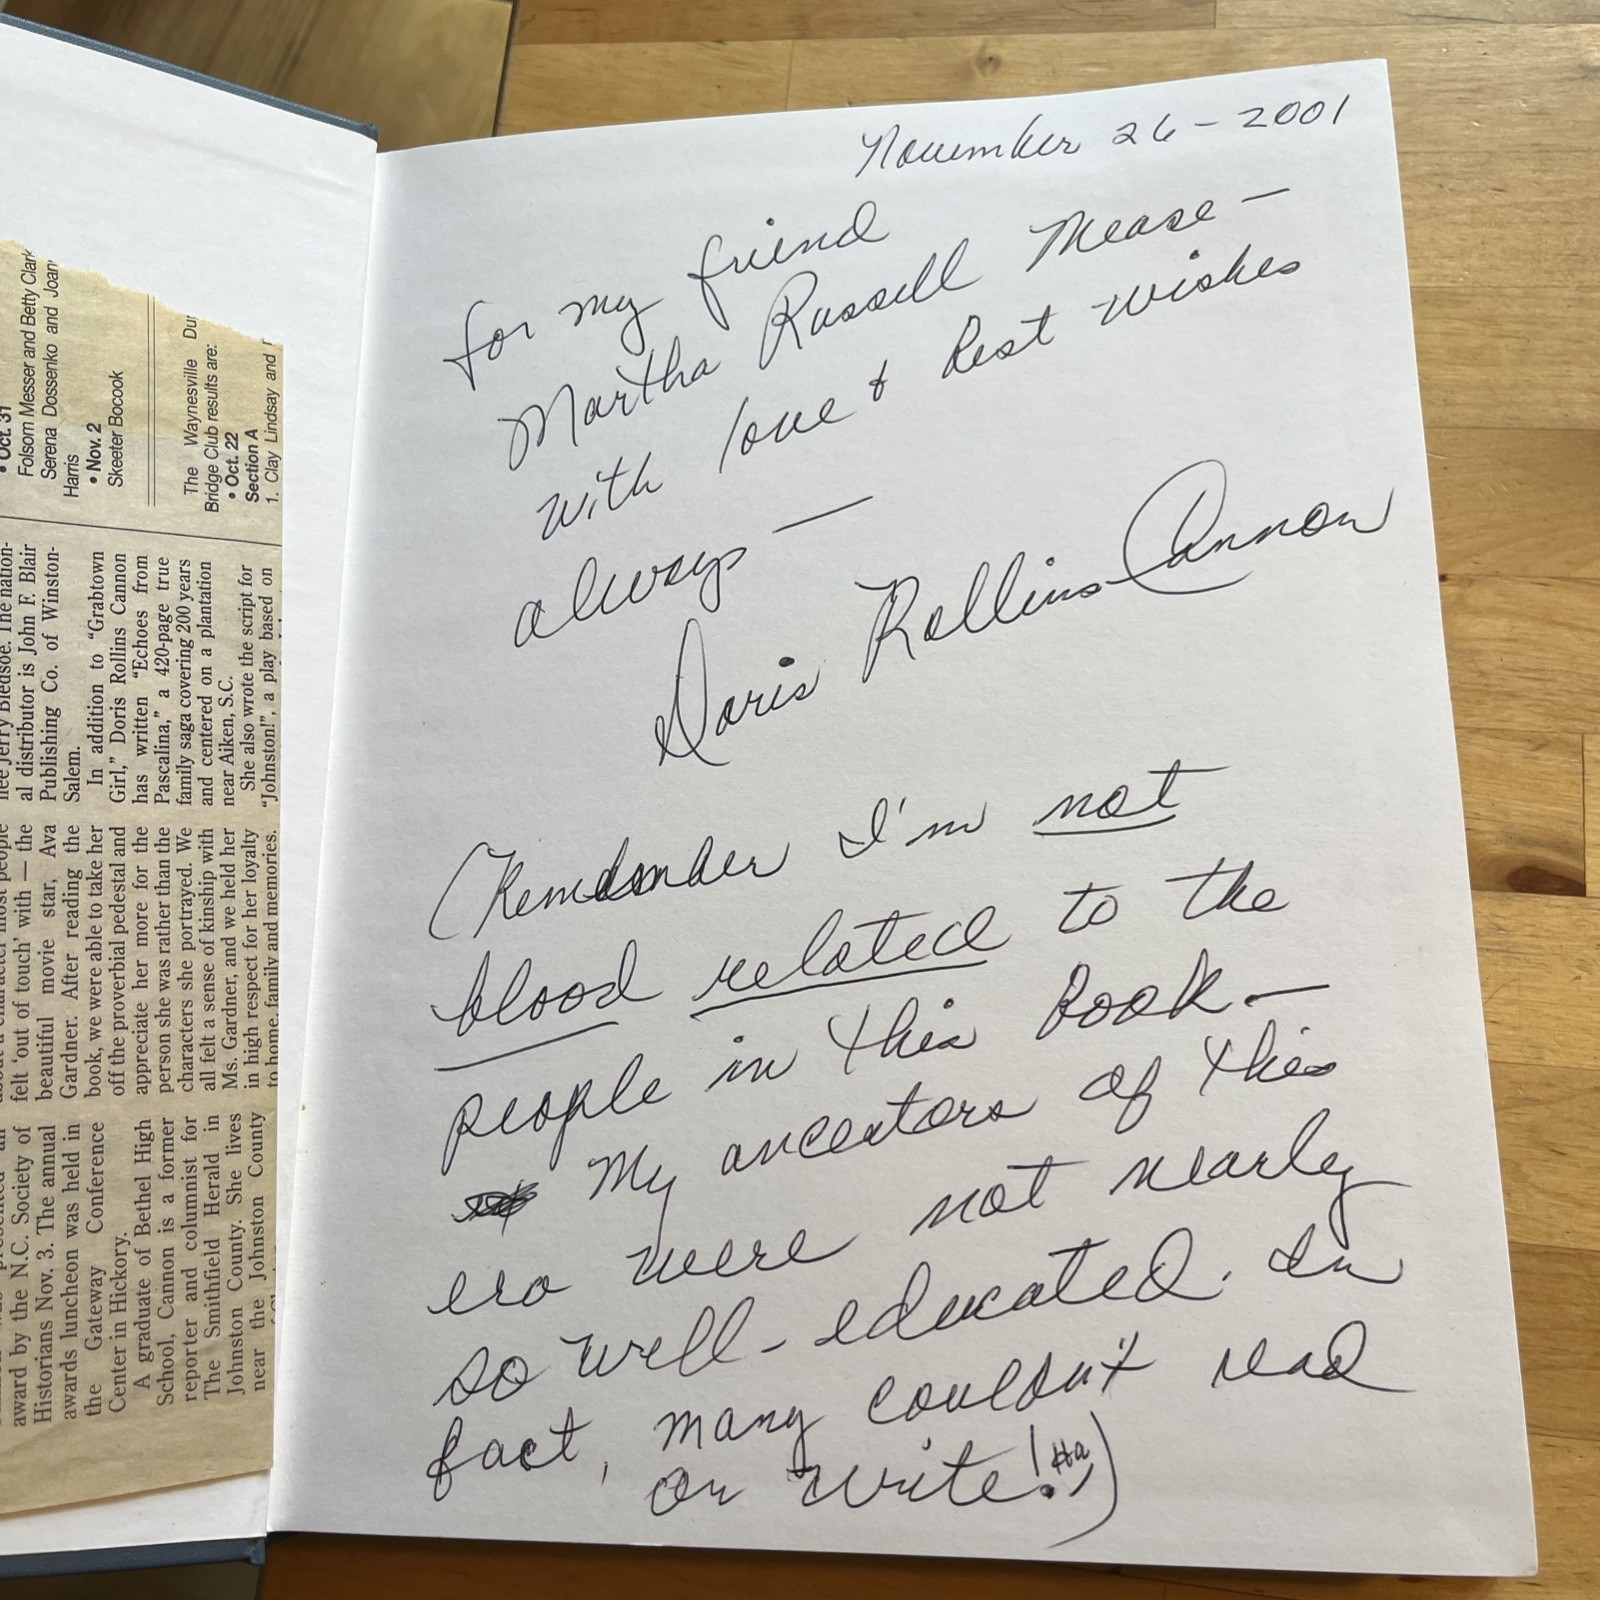 November 26 - 2001
for my friend
Martha Russell Mease —
with love & best wishes
always —
Doris Rollins Cannon
(Remember I'm not
blood related to the
people in this book. —
My ancestors of this
era were not nearly
so well-educated. In
fact, many couldn't read
or write! Ha)
• Oct. 31
Folsom Messer and Betty Clark
Serena Dossenko and Joan
Harris
• Nov. 2
Skeeter Bocook
The Waynesville Du
Bridge Club results are:
• Oct. 22
Section A
1. Clay Lindsay and
Jerry Bledsoe. The nation-
al distributor is John F. Blair
Publishing Co. of Winston-
Salem.
In addition to “Grabtown
Girl,” Doris Rollins Cannon
has written “Echoes from
Pascalina,” a 420-page true
family saga covering 200 years
and centered on a plantation
near Aiken, S.C.
She also wrote the script for
“Johnston!”, a play based on
felt ‘out of touch’ with — the
beautiful movie star, Ava
Gardner. After reading the
book, we were able to take her
off the proverbial pedestal and
appreciate her more for the
person she was rather than the
characters she portrayed. We
all felt a sense of kinship with
Ms. Gardner, and we held her
in high respect for her loyalty
to home, family and memories.
award by the N.C. Society of
Historians Nov. 3. The annual
awards luncheon was held in
the Gateway Conference
Center in Hickory.
A graduate of Bethel High
School, Cannon is a former
reporter and columnist for
The Smithfield Herald in
Johnston County. She lives
near the Johnston County